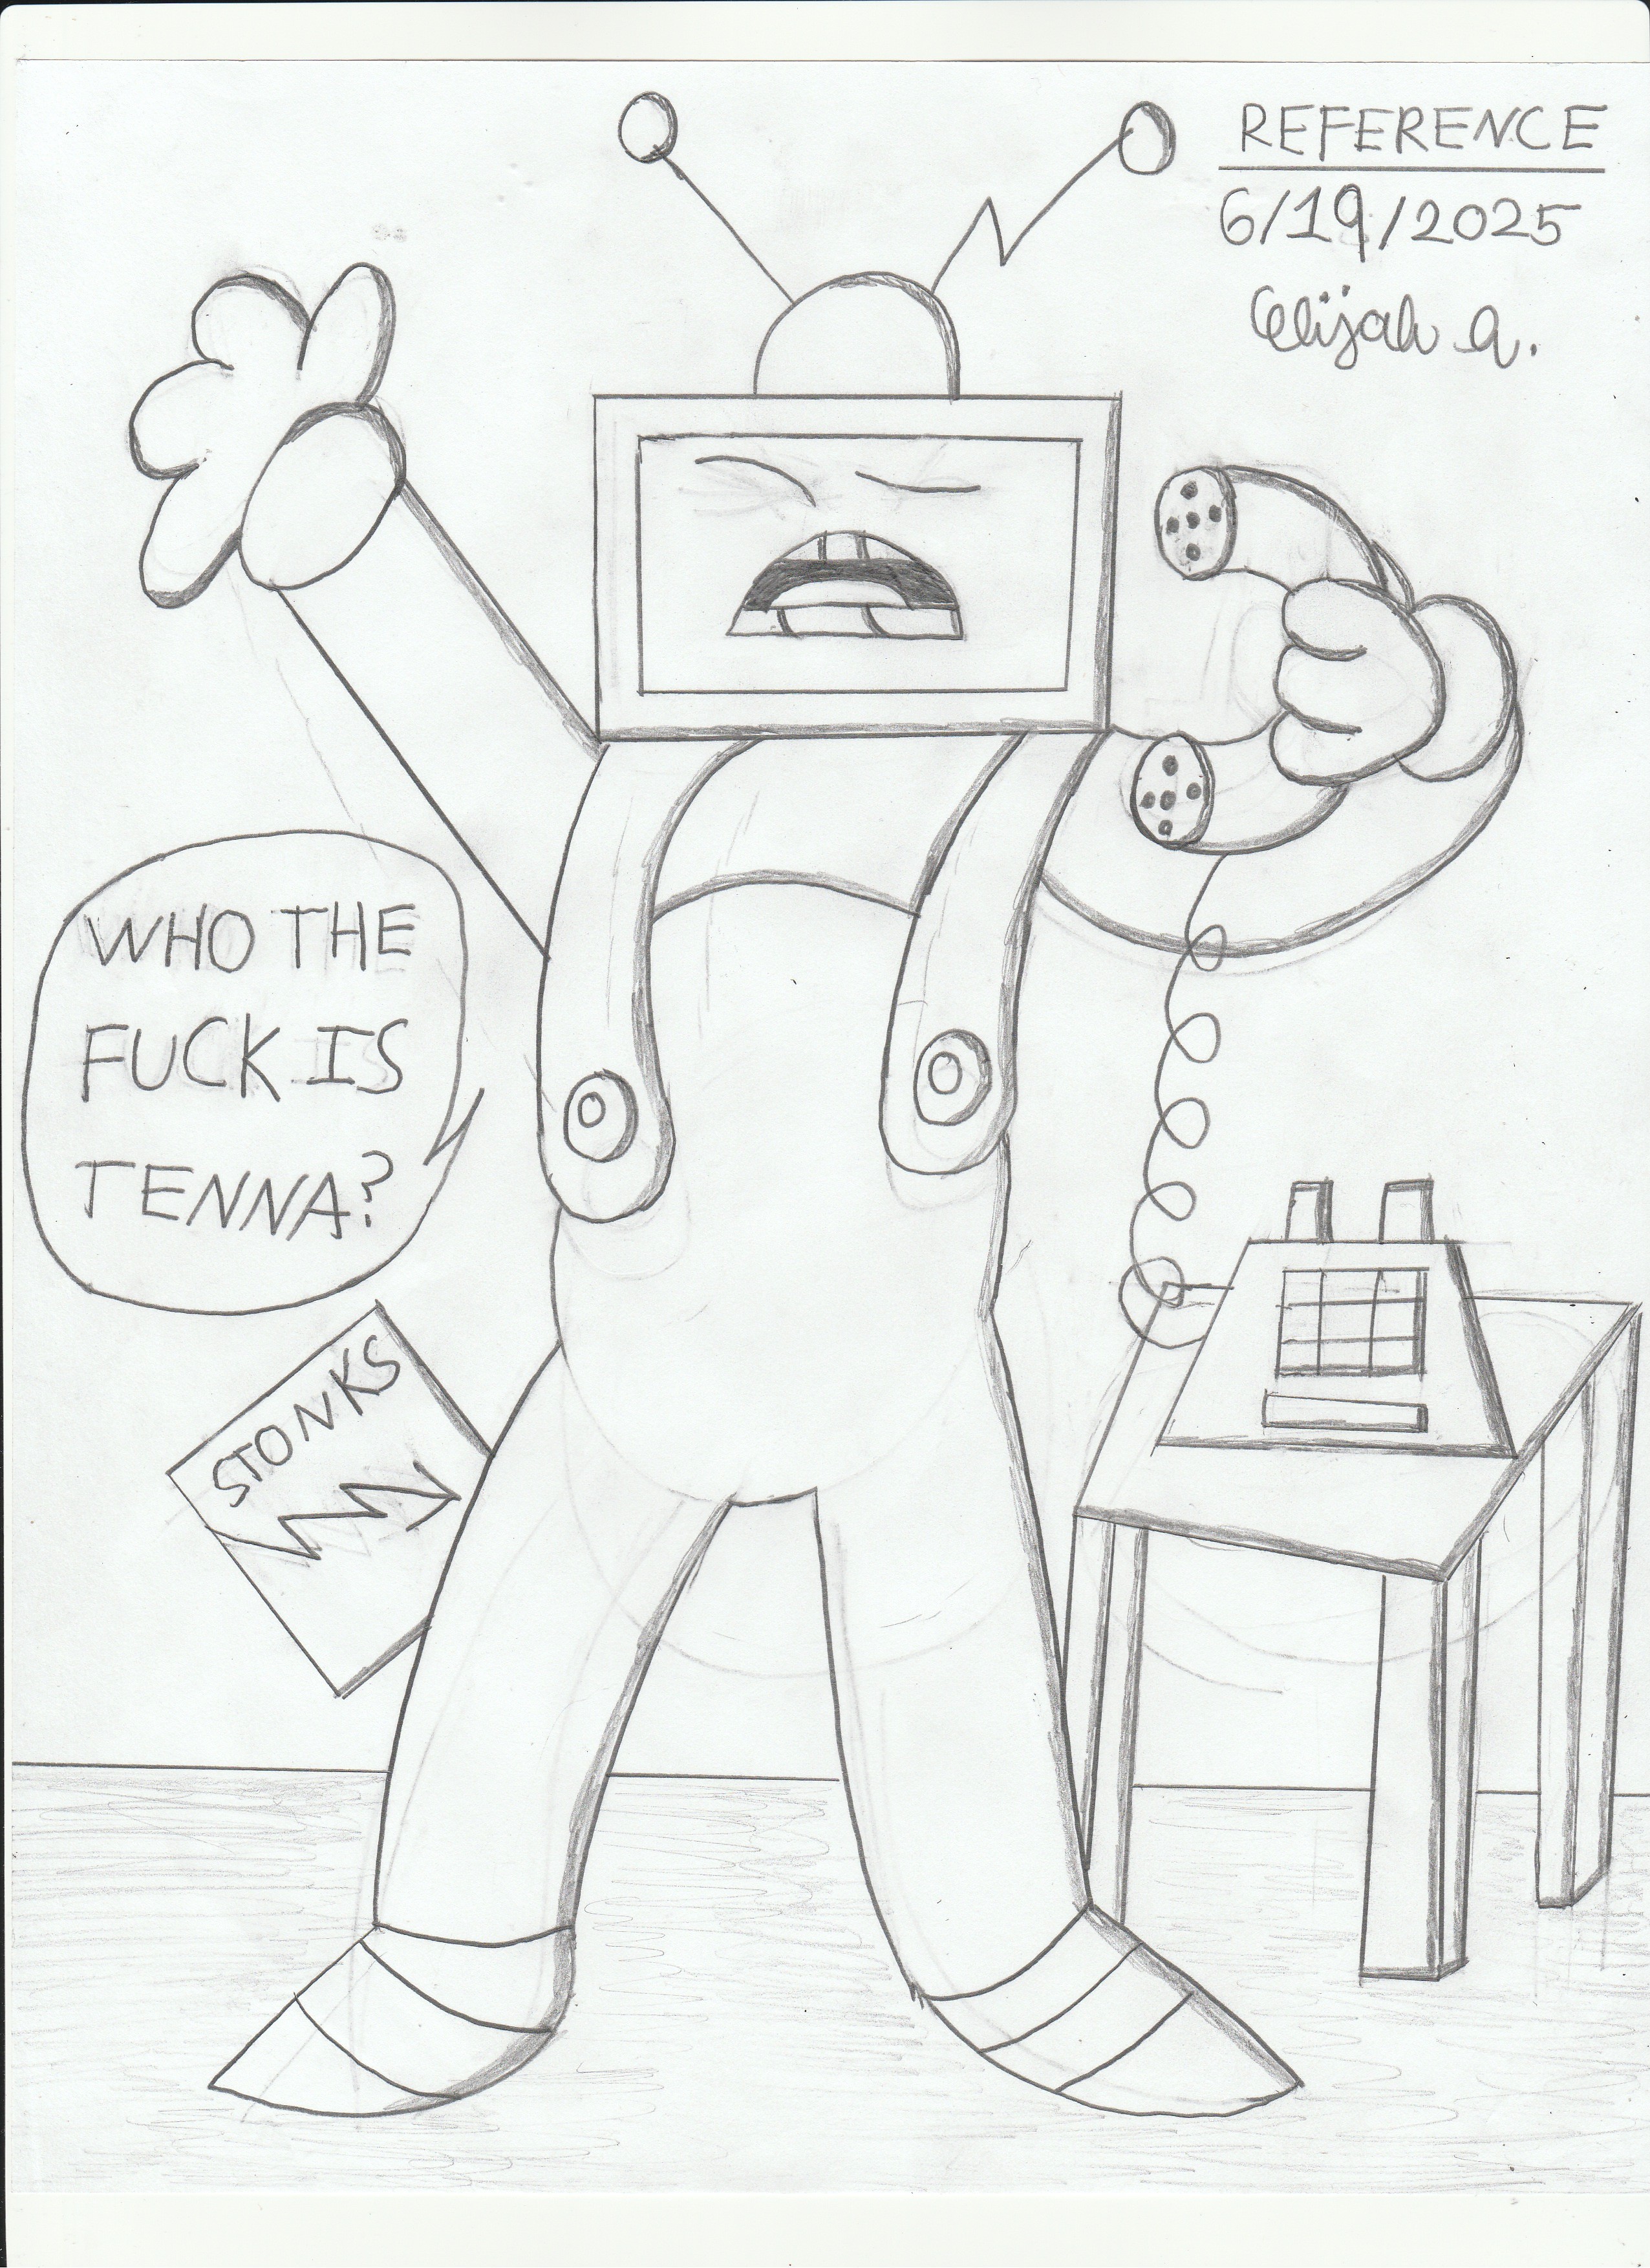 REFERENCE
6/19/2025
Elijah A.
WHO THE
FUCK IS
TENNA?
STONKS